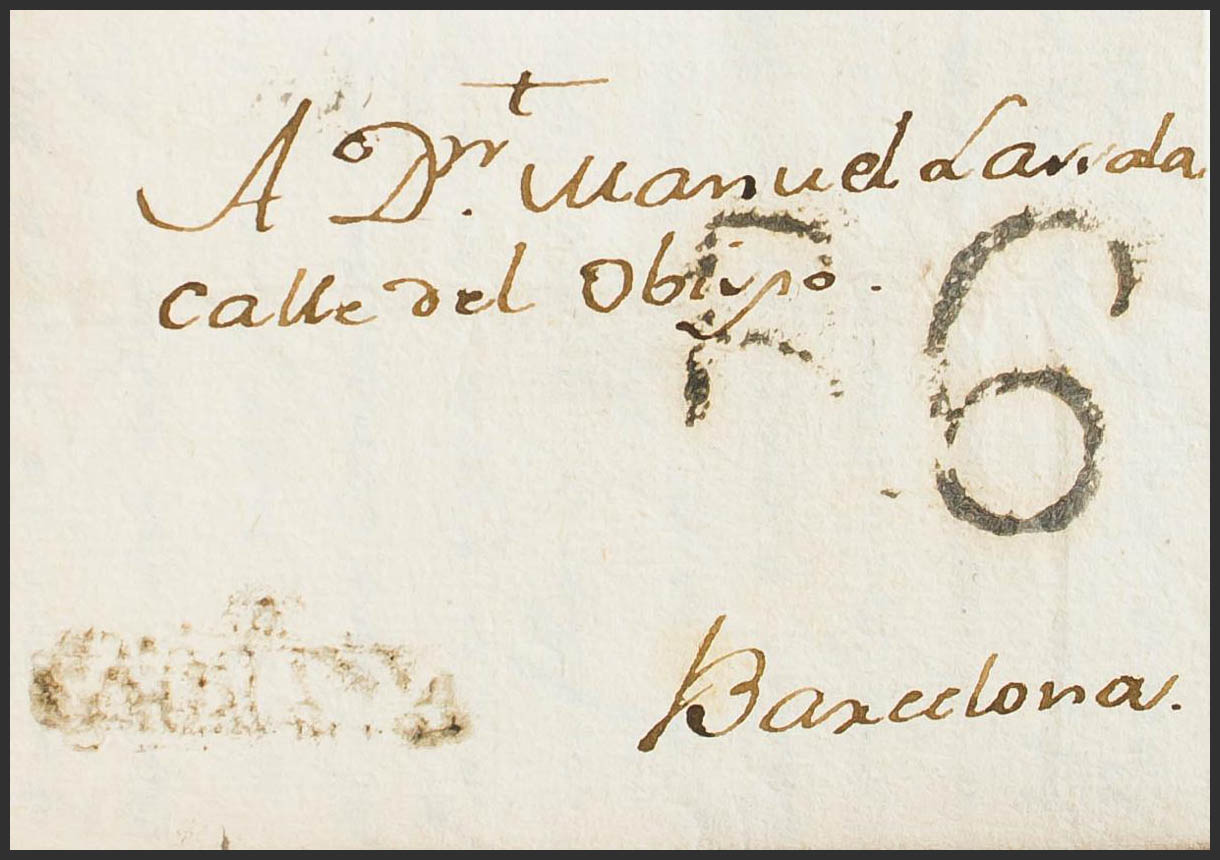 A Dn. Manuel
calle del Obispo.
R6
Barcelona.